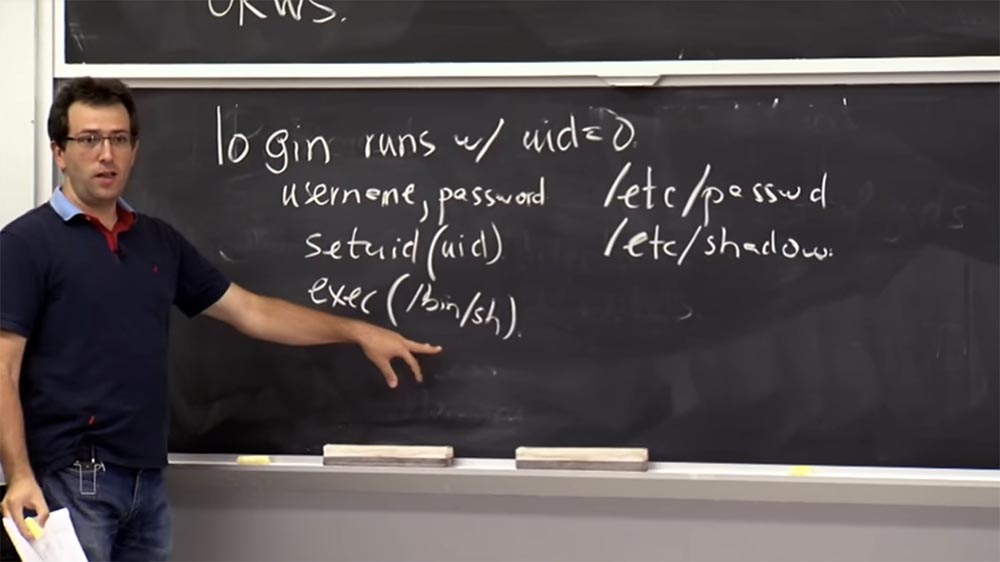 OKWS.
login runs w/ uid=0.
username, password /etc/passwd
setuid(uid) /etc/shadow.
exec(/bin/sh).